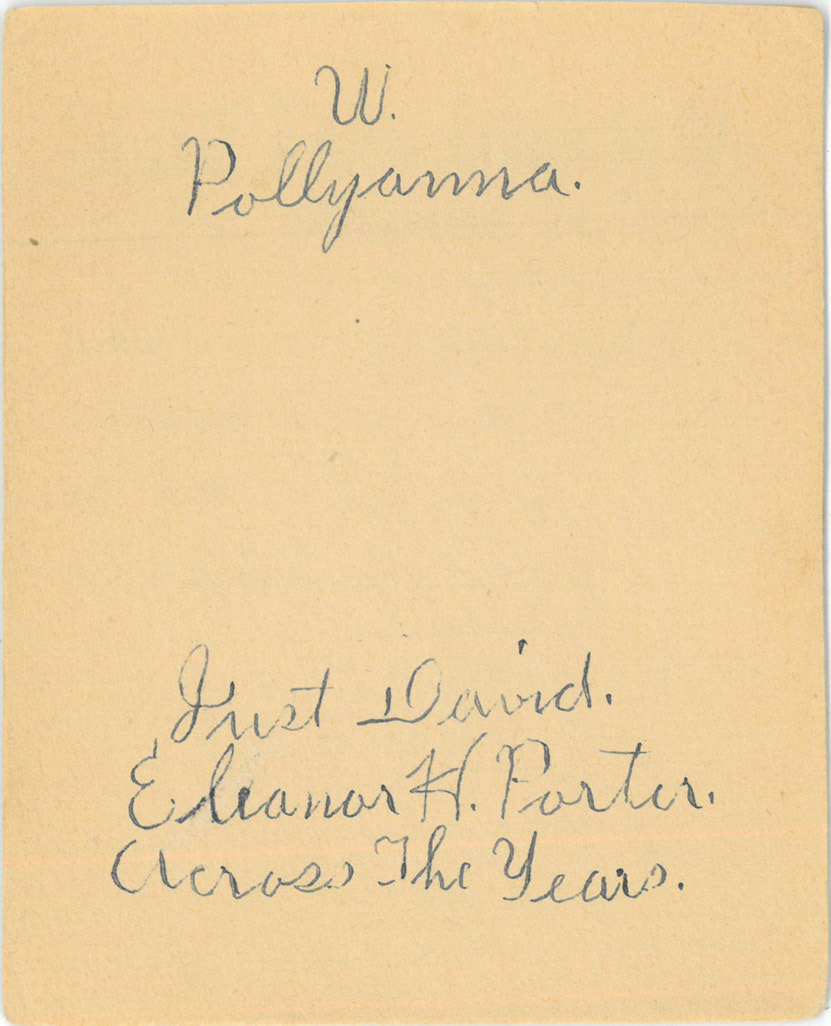 W.
Pollyanna.
Just David.
Eleanor H. Porter.
Across The Years.